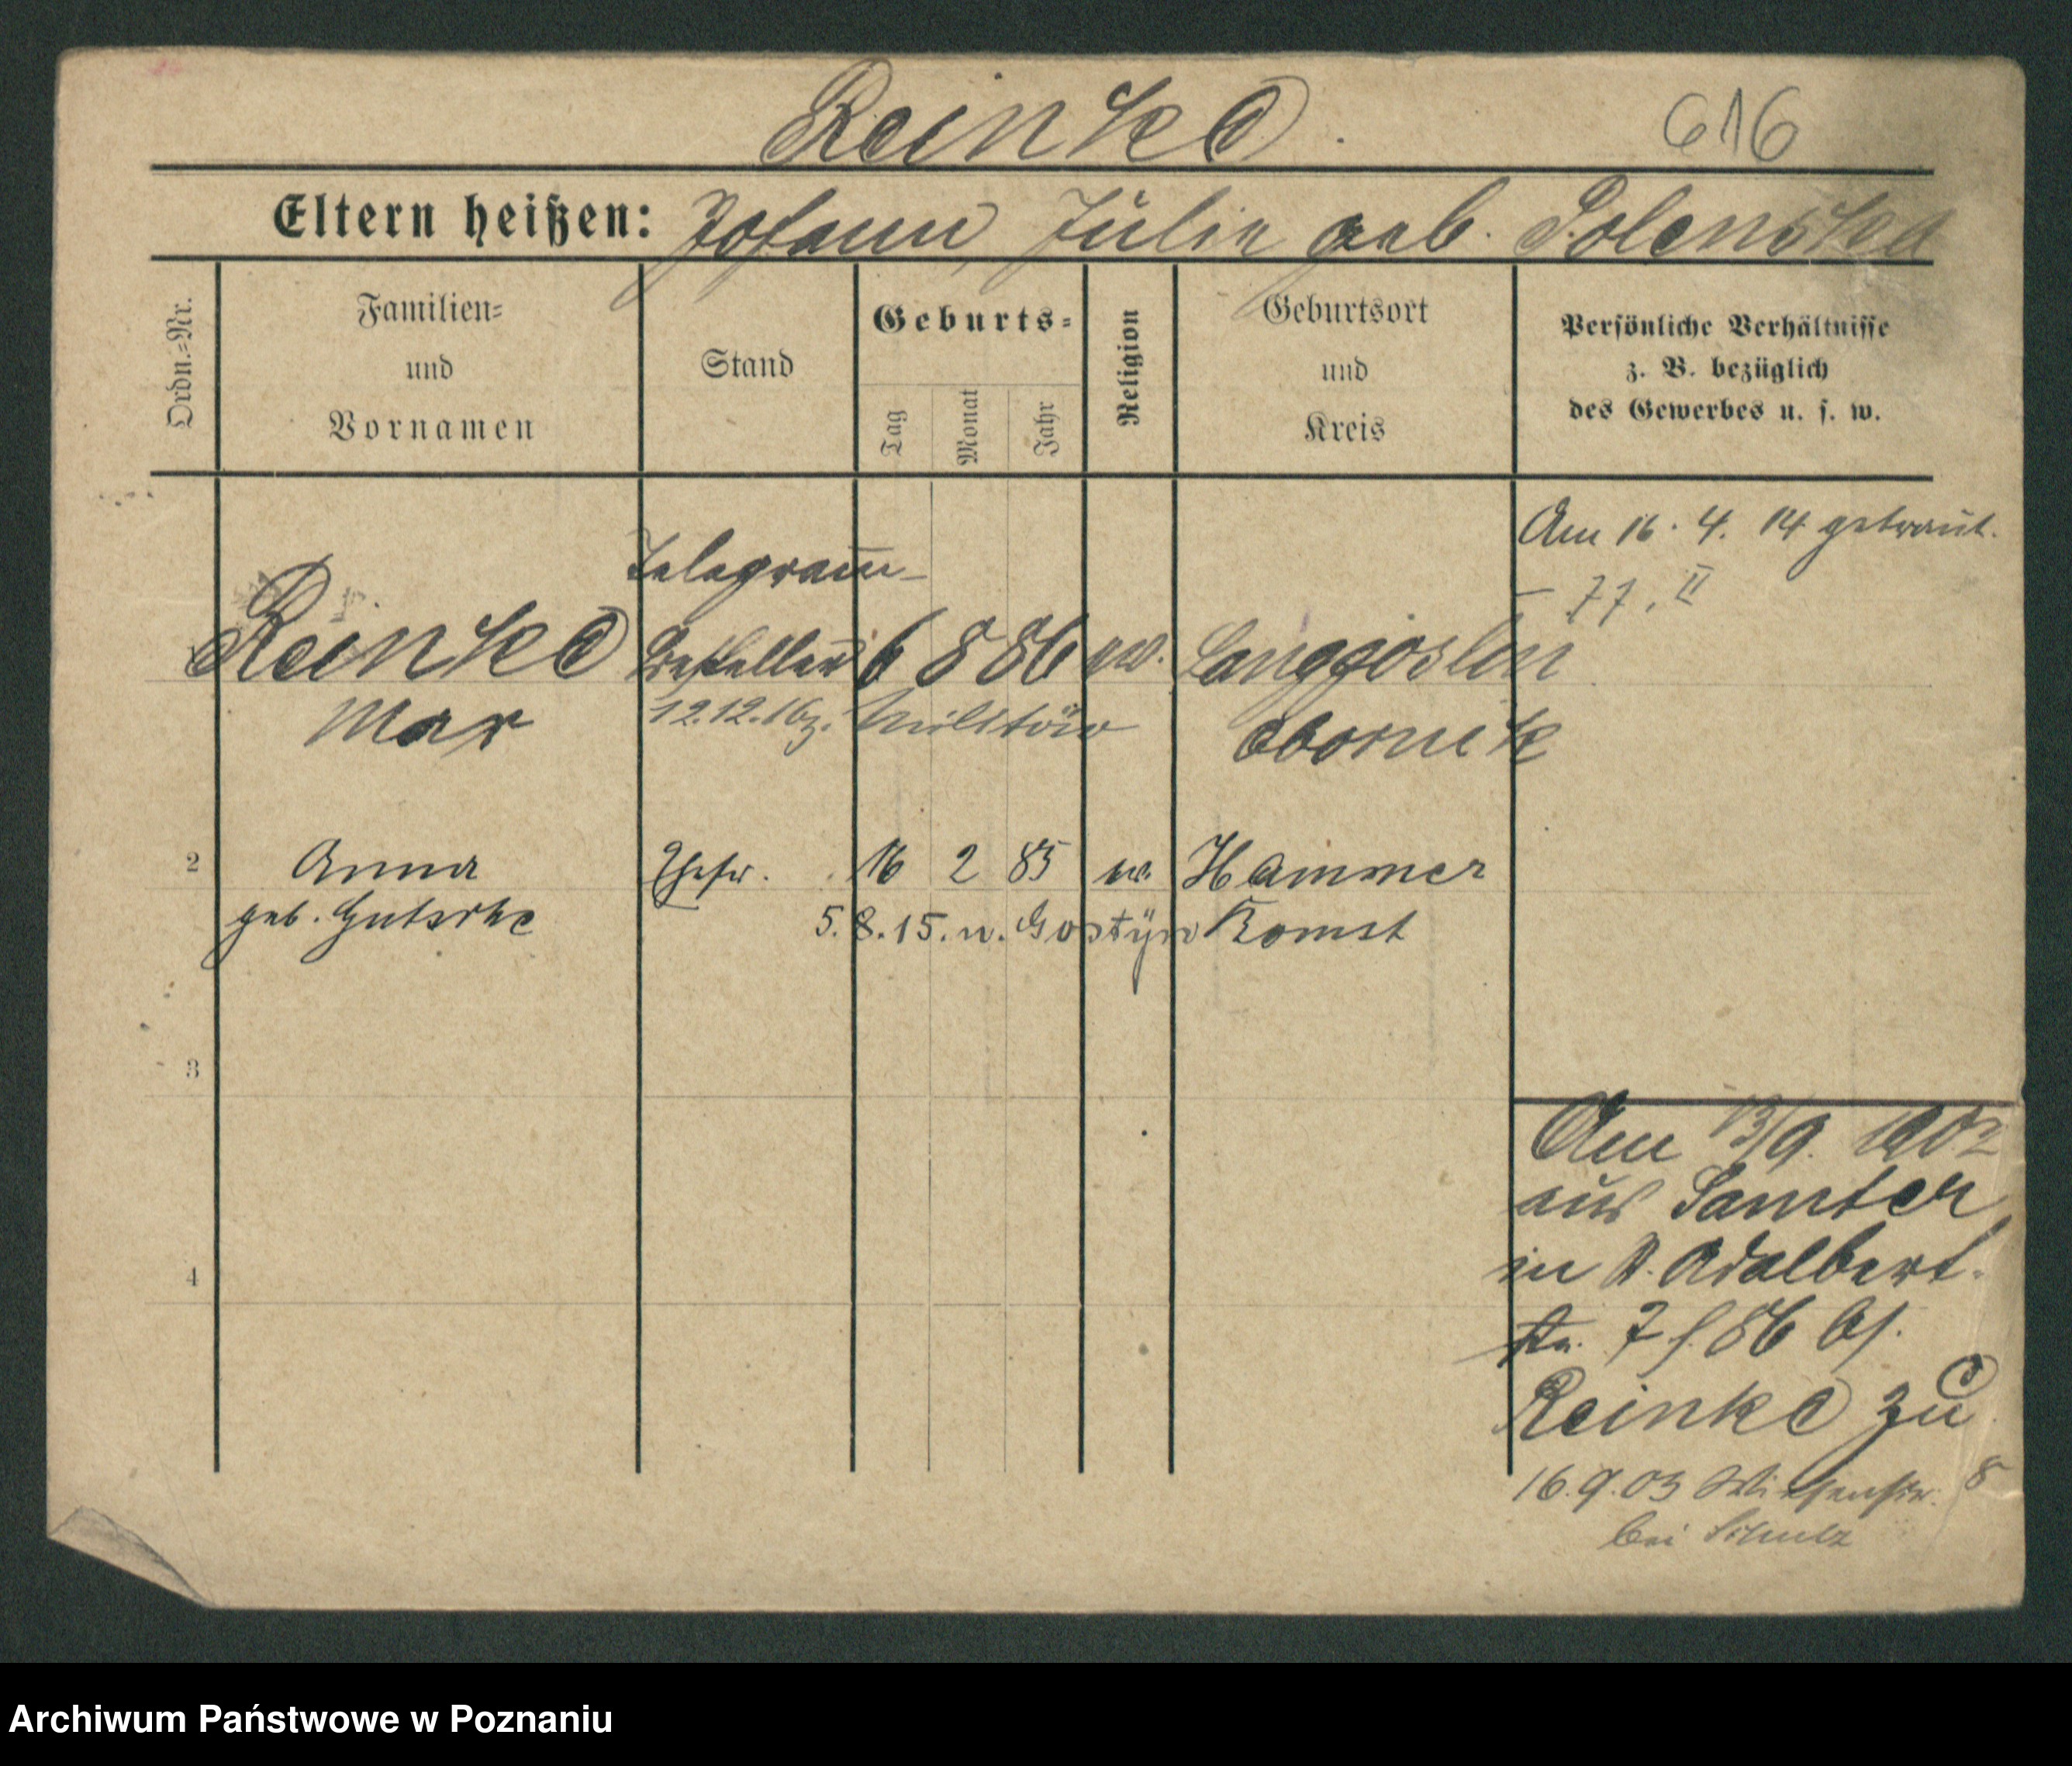 Reinke.
616
Eltern heißen: Johann, Julie geb. Polenska
Ordn.=Nr.
Familien=
und
Vornamen
Stand
Geburts=
Tag
Monat
Jahr
Religion
Geburtsort
und
Kreis
Persönliche Verhältnisse
z. B. bezüglich
des Gewerbes u. s. w.
Am 16. 4. 14 getraut.
77. II
Telegram̅-
Reinke Besteller 6 8 86 ev. Langgoslin
Max 12.12.16 z. Militär Obornik
2 Anna Ehefr. 16 2 85 ev. Hammer
geb. Gutsche 5.8.15. n. Gostyn Bomst
3
4
Am 13/9. 1902
aus Samter
in St. Adalbert-
str. 7 f. 86 bei
Reinke zu
16.9.03 Wiesenstr. 8
bei Schulz
Archiwum Państwowe w Poznaniu